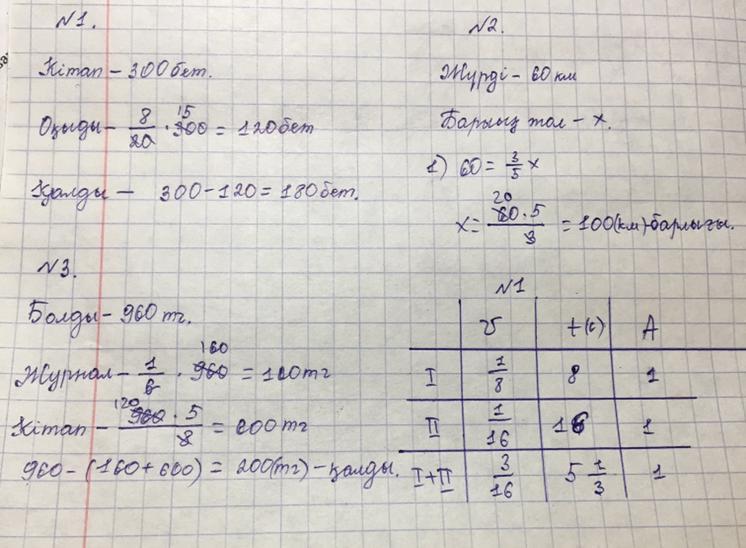 №1.
Кітап – 300 бет.
Оқыды – 8/20 · 300 15 = 120 бет
Қалды – 300 – 120 = 180 бет.
№2.
Жүрді – 60 км
Барлық жол – x.
1) 60 = 3/5 x
x = 20 60 · 5 / 3 = 100(км) барлығы.
№3.
Болды – 960 тг.
Журнал – 1/6 · 960 160 = 160 тг
Кітап – 120 960 · 5 / 8 = 600 тг
960 – (160 + 600) = 200(тг) – қалды.
№1
v t(с) A
I 1/8 8 1
II 1/16 16 1
I+II 3/16 5 1/3 1